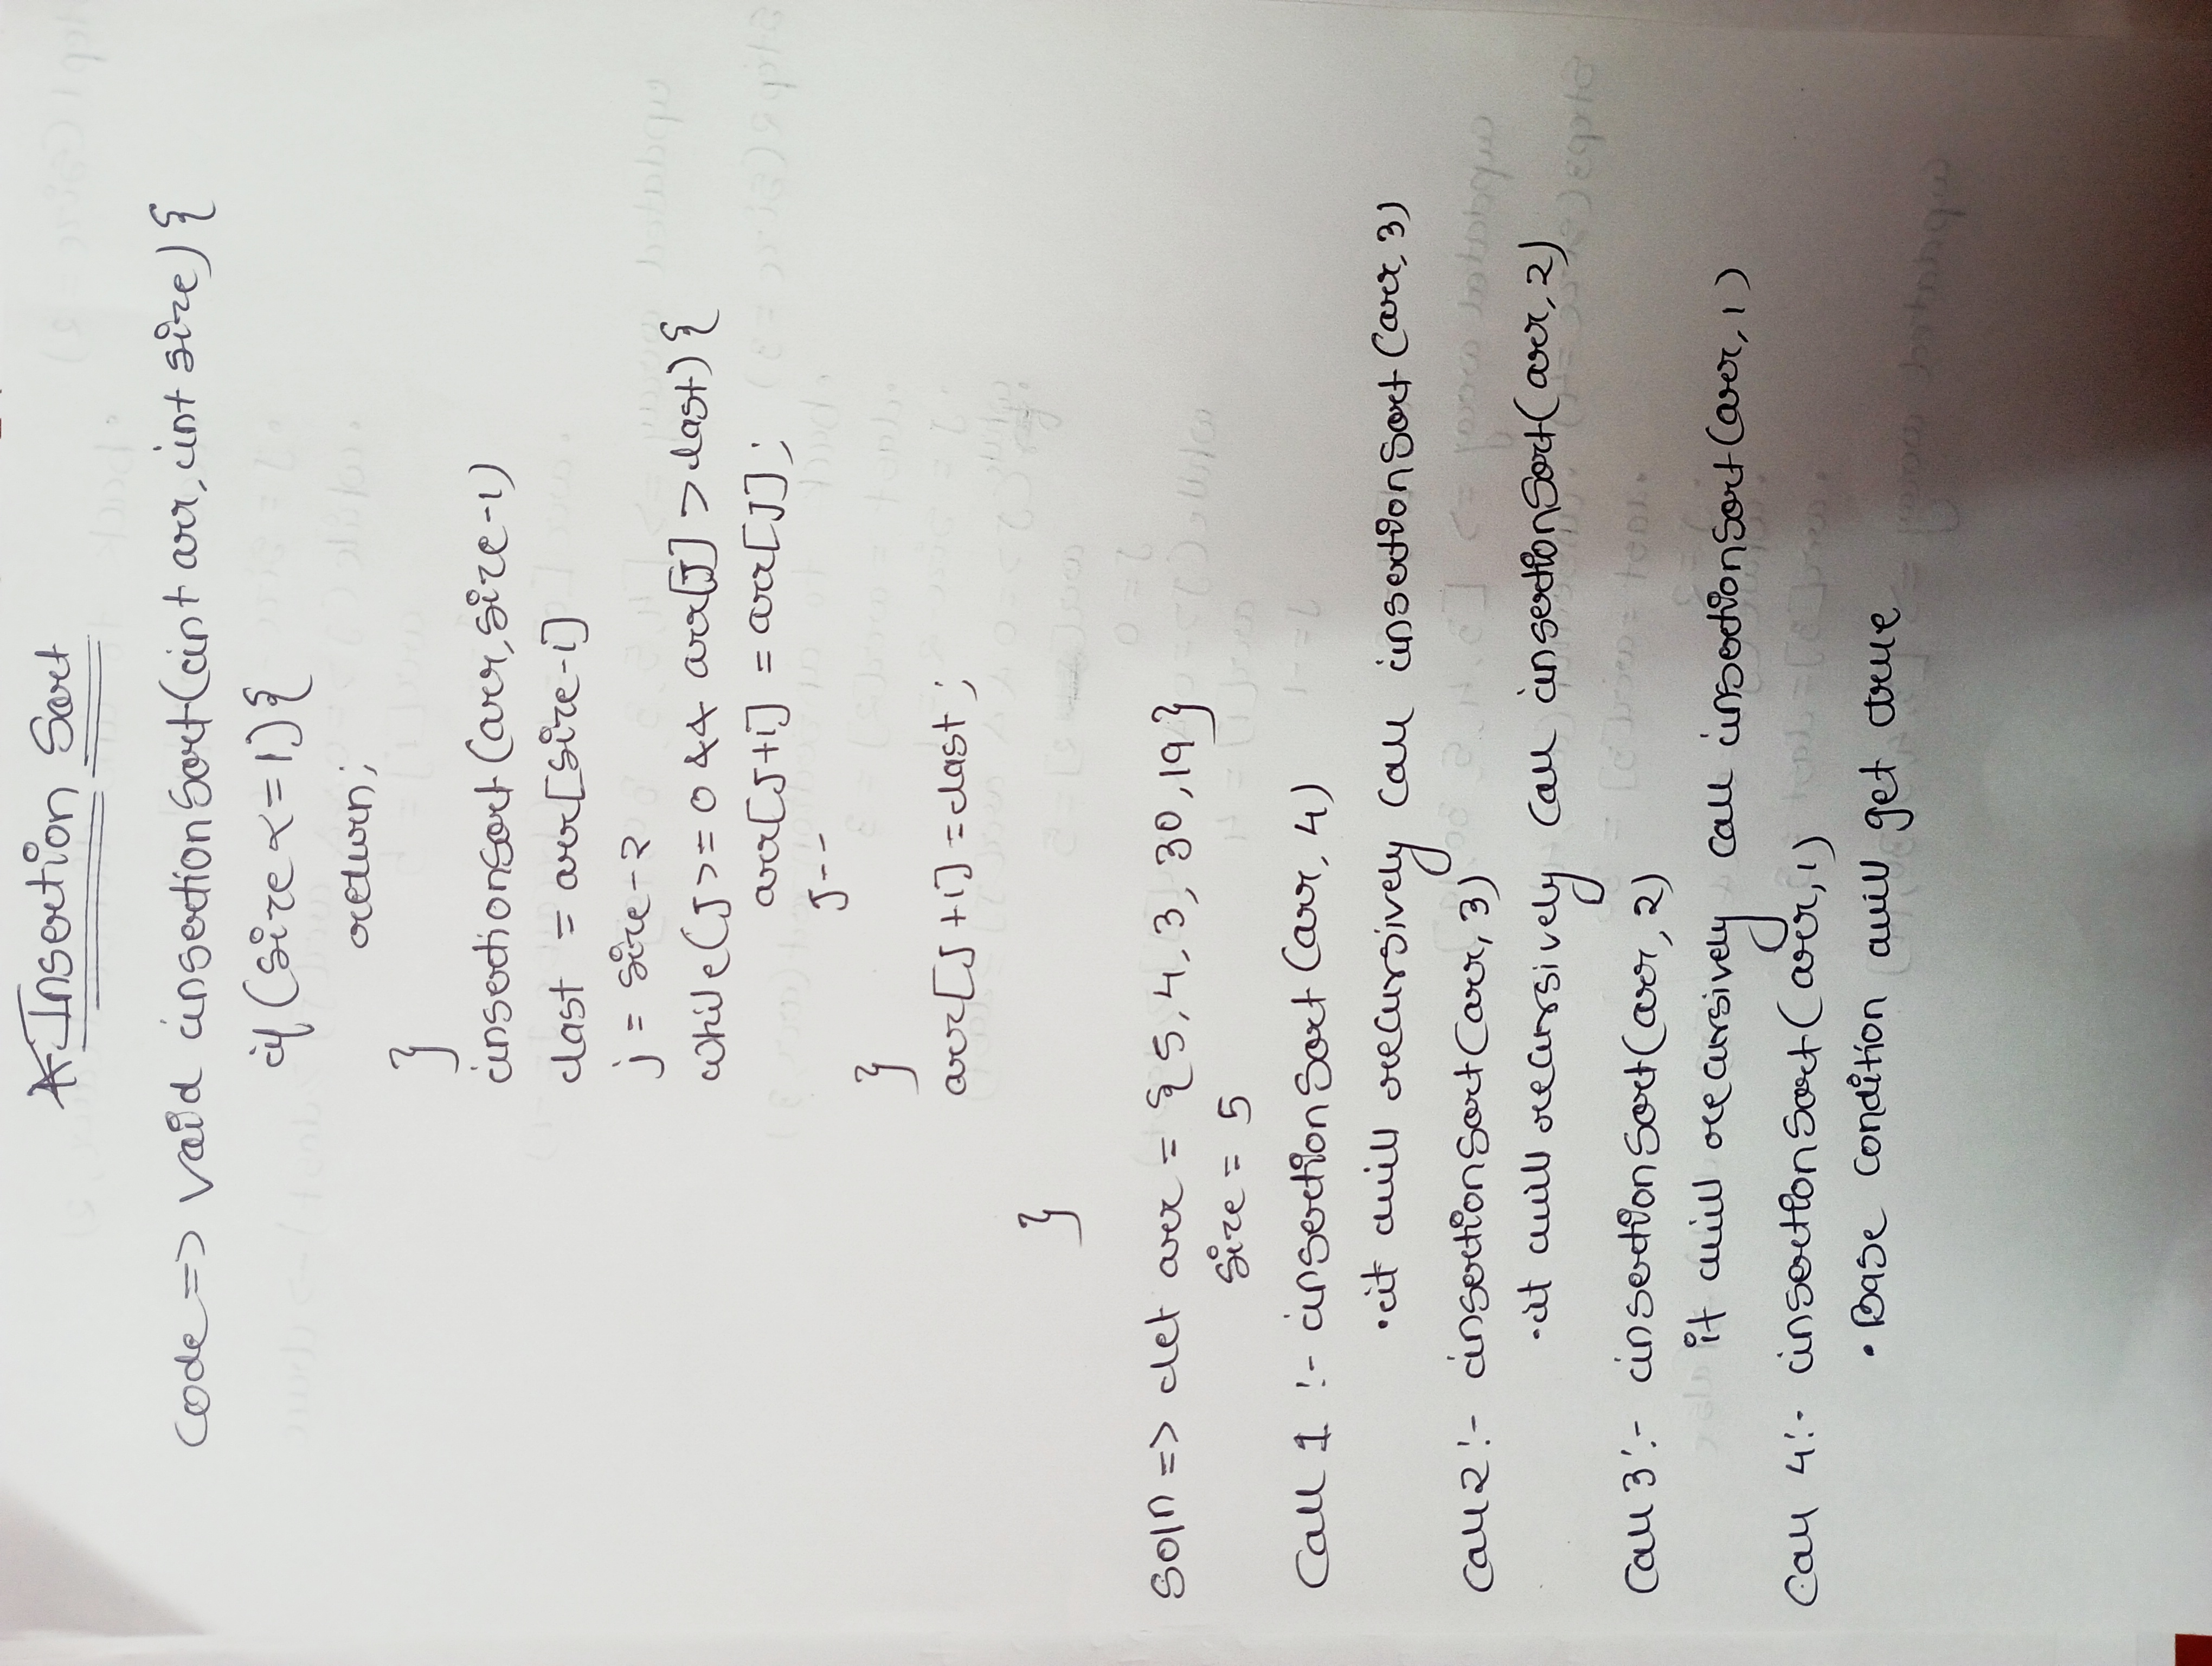 * Insertion Sort
Code => void insertionSort(int arr, int size) {
if (size <= 1) {
return;
}
insertionSort(arr, size-1)
last = arr[size-1]
j = size-2
while(j >= 0 && arr[j] > last) {
arr[j+1] = arr[j];
j--
}
arr[j+1] = last;
}
Soln => let arr = {5, 4, 3, 30, 19}
size = 5
Call 1 :- insertionSort(arr, 4)
• it will recursively call insertionSort(arr, 3)
Call 2 :- insertionSort(arr, 3)
• it will recursively call insertionSort(arr, 2)
Call 3 :- insertionSort(arr, 2)
it will recursively call insertionSort(arr, 1)
Call 4 :- insertionSort(arr, 1)
• Base condition will get true